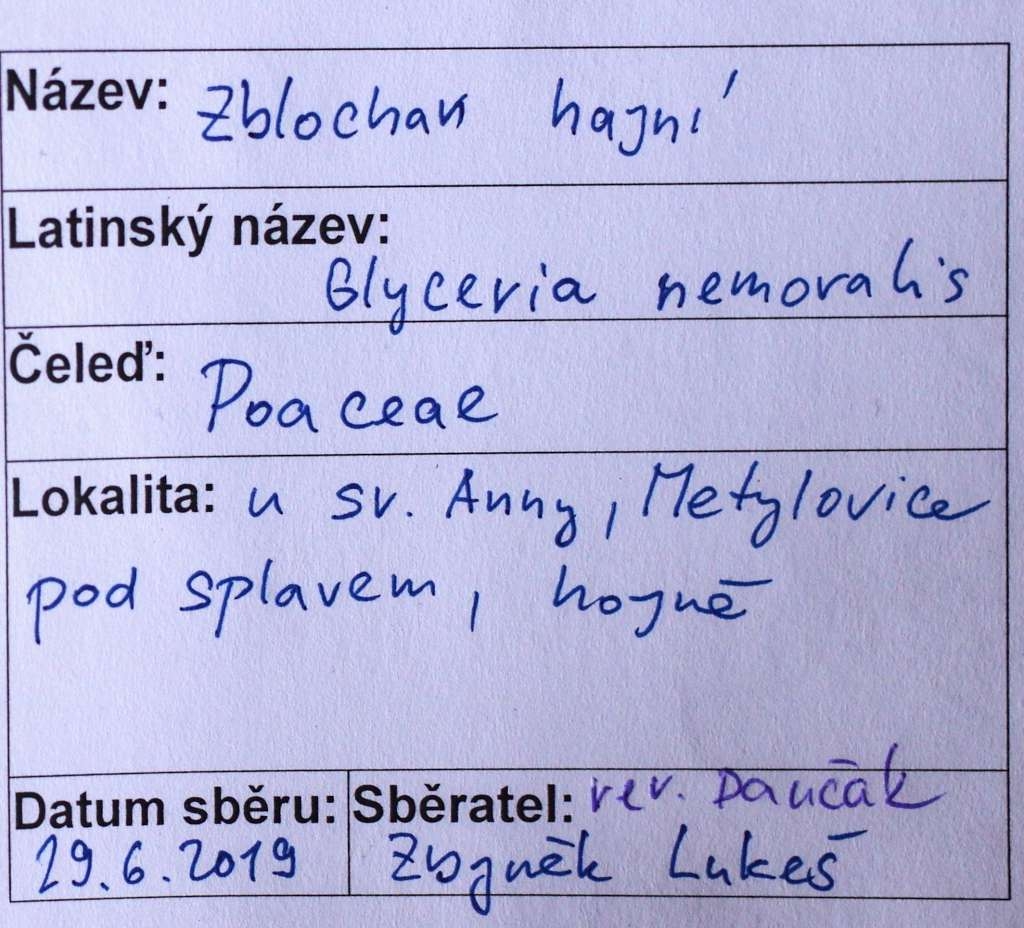 Název: Zblochan hajní
Latinský název:
Glyceria nemoralis
Čeleď:
Poaceae
Lokalita: u sv. Anny, Metylovice
pod splavem, hojně
Datum sběru: Sběratel: rev. Dančák
29.6.2019 Zbyněk Lukeš